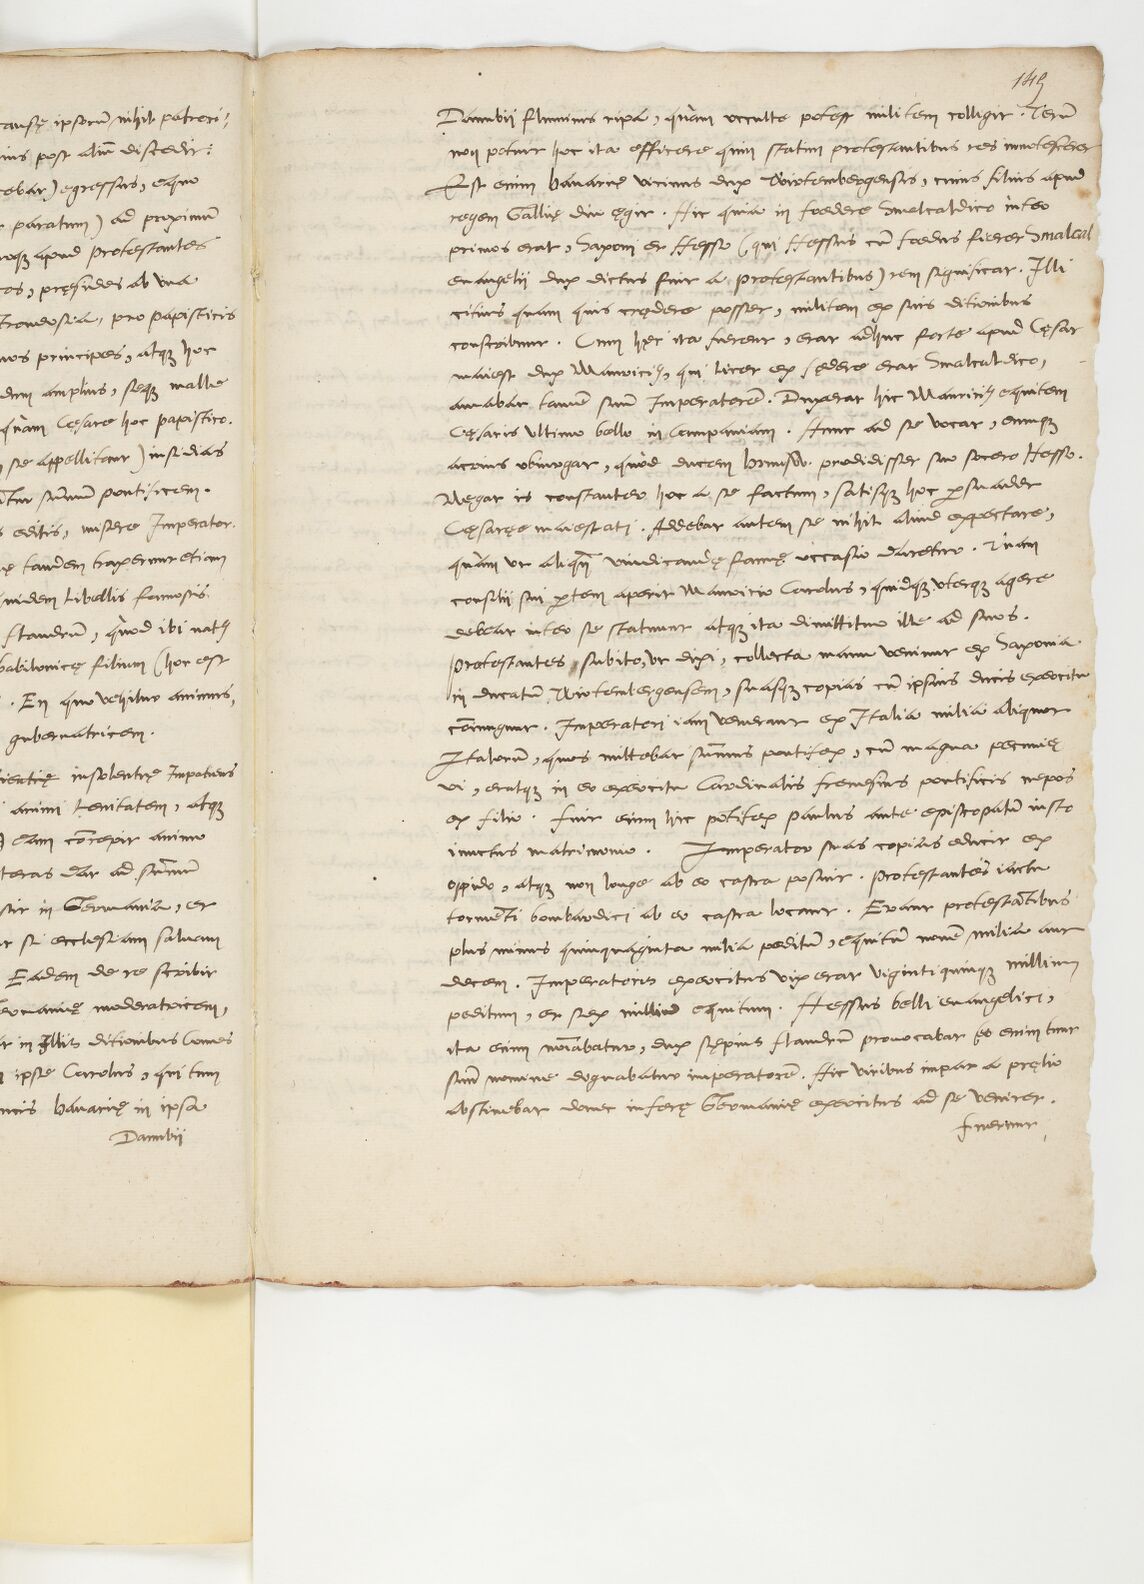 causę ipsorũ nihil patroci:
ius post aliũ discedit:
ebat) egressus, equo
paratum) ad proximũ
apud Protestantes
os, pręsides ab una
pro papisticis
nos principes, atqꝫ hoc
dum amplius, seqꝫ malle
quàm Cęsare hoc papistico.
se appellitant) insidias
summũ pontificem.
editis, misere Imperator.
tandem traxerunt etiam
quidem libellis famosis
flandrũ, quòd ibi natꝰ
babilonicę filium (hoc est
. En quo vehitur animus,
gubernatricem.
insolentię Impatiens
animi lenitatem, atqꝫ
eam cõrepit animo
teras dat ad summũ
in Germania, et
si ecclesiam saluam
Eadem de re scribit
Germanię moderatricem,
in illis ditionibus Comes
ipse Carolus, qui tum
Bauarię in ipsa
Danubii
149
Danubii fluminis ripa, quàm occulte potest militem colligit. Verũ
non potuit hoc ita efficere quin statim protestantibus res innotesceret
Est enim Bauarię vicinus dux Wirtembergensis, cuius filius apud
regem Gallię diu ęgit. Hic quia in foedere Smalcaldico inter
primos erat, Saxoni et Hesso (qui Hessus cũ foedus fieret Smalcal
euangelii dux dictus fuit a protestantibus) rem significat. Illi
citius quàm quis crędere posset, militem ex suis ditionibus
conscribunt. Cum hęc ita fierent, erat adhuc forte apud Cęsar
maiest dux Mauriciꝰ, qui licet ex foedere erat Smalcaldico,
amabat tamẽ suũ Imperatorẽ. Duxerat hic Mauriciꝰ equitem
Cęsaris ultimo bello in Campaniam. Hunc ad se vocat, eumqꝫ
acrius obiurgat, quòd ducem brunsW. prodidisset suo socero Hesso.
Negat is constanter hoc a se factum, satisqꝫ hoc persuadet
Cęsareę maiestati. Addebat autem se nihil aliud expectare,
quàm ut aliqñ vindicandę famę occasio daretur. Tum
consilii sui partem aperit Mauricio Carolus, quidqꝫ uterqꝫ agere
debeat inter se statuunt atqꝫ ita dimittitur ille ad suos.
Protestantes subito, ut dixi, collecta manu veniunt ex Saxonia
in ducatũ Wirtembergensem, suasqꝫ copias cũ ipsius ducis exercitu
cõiungunt. Imperatori iam venerant ex Italia milia aliquot
Italorũ, quos mittebat summus pontifex, cũ magna pecunię
vi, eratqꝫ in eo exercitu Cardinalis frenesius pontificis nepos
ex filio. Fuit enim hic põtifex paulus ante episcopatũ iusto
iunctus matrimonio. Imperator suas copias educit ex
oppido, atqꝫ non longe ab eo castra posuit. Protestantes iactu
tormẽti bombardici ab eo castra locant. Erant protestãtibus
plus minus quinquaginta milia peditũ, equitũ nouẽ milia aut
decem. Imperatoris exercitus vix erat vigintiquinqꝫ millium
peditum, et sex millium equitum. Hessus belli euangelici,
ita enim noĩabatur, dux sępius flandrũ prouocabat eo enim tunc
suũ nomine dignabatur imperatorẽ. Hic viribus impar a pręlio
abstinebat donec inferę Germanię exercitus ad se veniret.
fuerunt